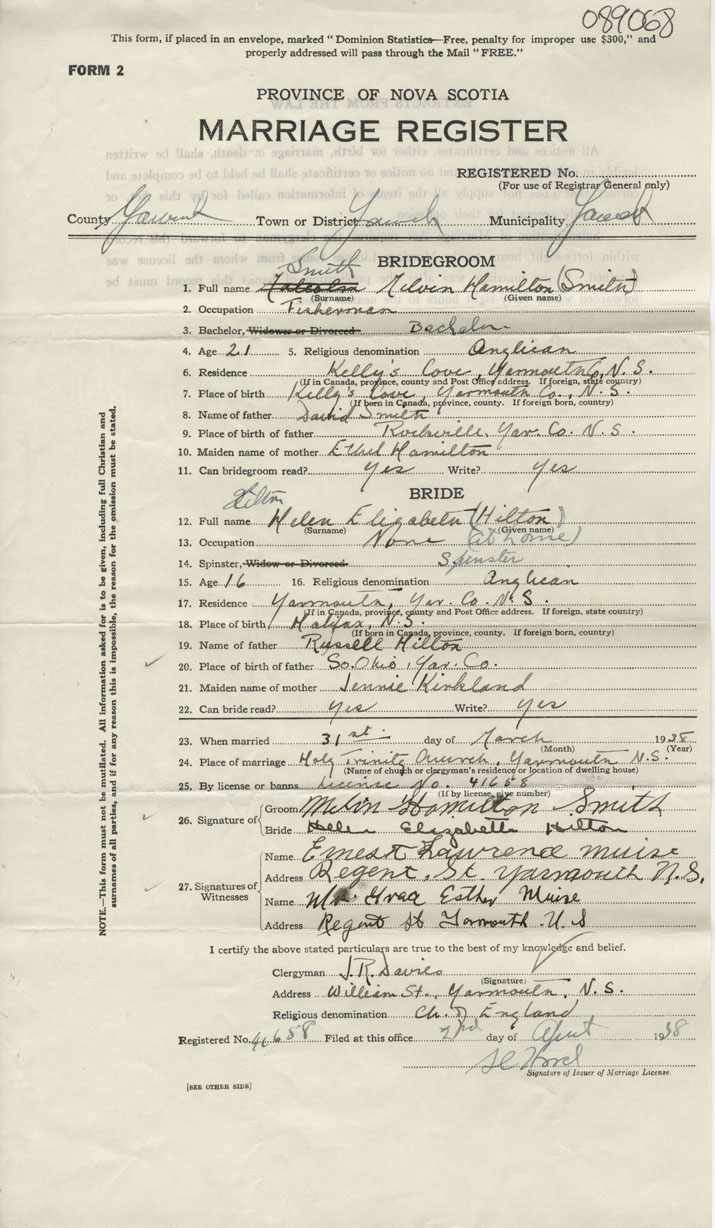 089068
This form, if placed in an envelope, marked " Dominion Statistics—Free, penalty for improper use $300," and
properly addressed will pass through the Mail " FREE."
FORM 2
PROVINCE OF NOVA SCOTIA
MARRIAGE REGISTER
REGISTERED No.
(For use of Registrar General only)
County Yarmouth Town or District Yarmouth Municipality Yarmouth
BRIDEGROOM
Smith
1. Full name Malcolm Melvin Hamilton (Smith)
(Surname) (Given name)
2. Occupation Fisherman
3. Bachelor, Widower or Divorced Bachelor
4. Age 21 5. Religious denomination Anglican
6. Residence Kelly's Cove, Yarmouth Co, N. S.
(If in Canada, province, county and Post Office address. If foreign, state country)
7. Place of birth Kelly's Cove, Yarmouth Co., N. S.
(If born in Canada, province, county. If foreign, country)
8. Name of father David Smith
9. Place of father Rockville, Yar. Co. N. S.
10. Maiden name of mother Ethel Hamilton
11. Can bridegroom read? Yes Write? Yes
BRIDE
Hilton
12. Full name Helen Elizabeth (Hilton)
(Surname) (Given name)
13. Occupation None (at home)
14. Spinster, Widow or Divorced Spinster
15. Age 16 16. Religious denomination Anglican
17. Residence Yarmouth, Yar. Co. N. S.
(If in Canada, province, county and Post Office address. If foreign, state country)
18. Place of birth Halifax, N. S.
(If born in Canada, province, county. If foreign, country)
19. Name of father Russell Hilton
20. Place of birth of father So. Ohio, Yar. Co.
21. Maiden name of mother Jennie Kirkland
22. Can bride read? Yes Write? Yes
23. When married 31st day of March 1938
(Month) (Year)
24. Place of marriage Holy Trinity Church, Yarmouth N. S.
(Name of church or clergyman's residence or location of dwelling house)
25. By license or banns License No. 41658
(If by license, give number)
26. Signature of
Groom Melvin Hamilton Smith
Bride Helen Elizabeth Hilton
27. Signatures of Witnesses
Name Ernest Lawrence Muise
Address Regent. St. Yarmouth N. S.
Name Grace Esther Muise
Address Regent St Yarmouth N. S
I certify the above stated particulars are true to the best of my knowledge and belief.
Clergyman J. R. Davies
(Signature)
Address William St., Yarmouth, N. S.
Religious denomination Ch. of England
Registered No. 41658 Filed at this office 2nd day of April 1938
Signature of Issuer of Marriage License
[SEE OTHER SIDE]
NOTE.—This form must not be mutilated. All information asked for is to be given, including full Christian and
surnames of all parties, and if for any reason this is impossible, the reason for the omission must be stated.